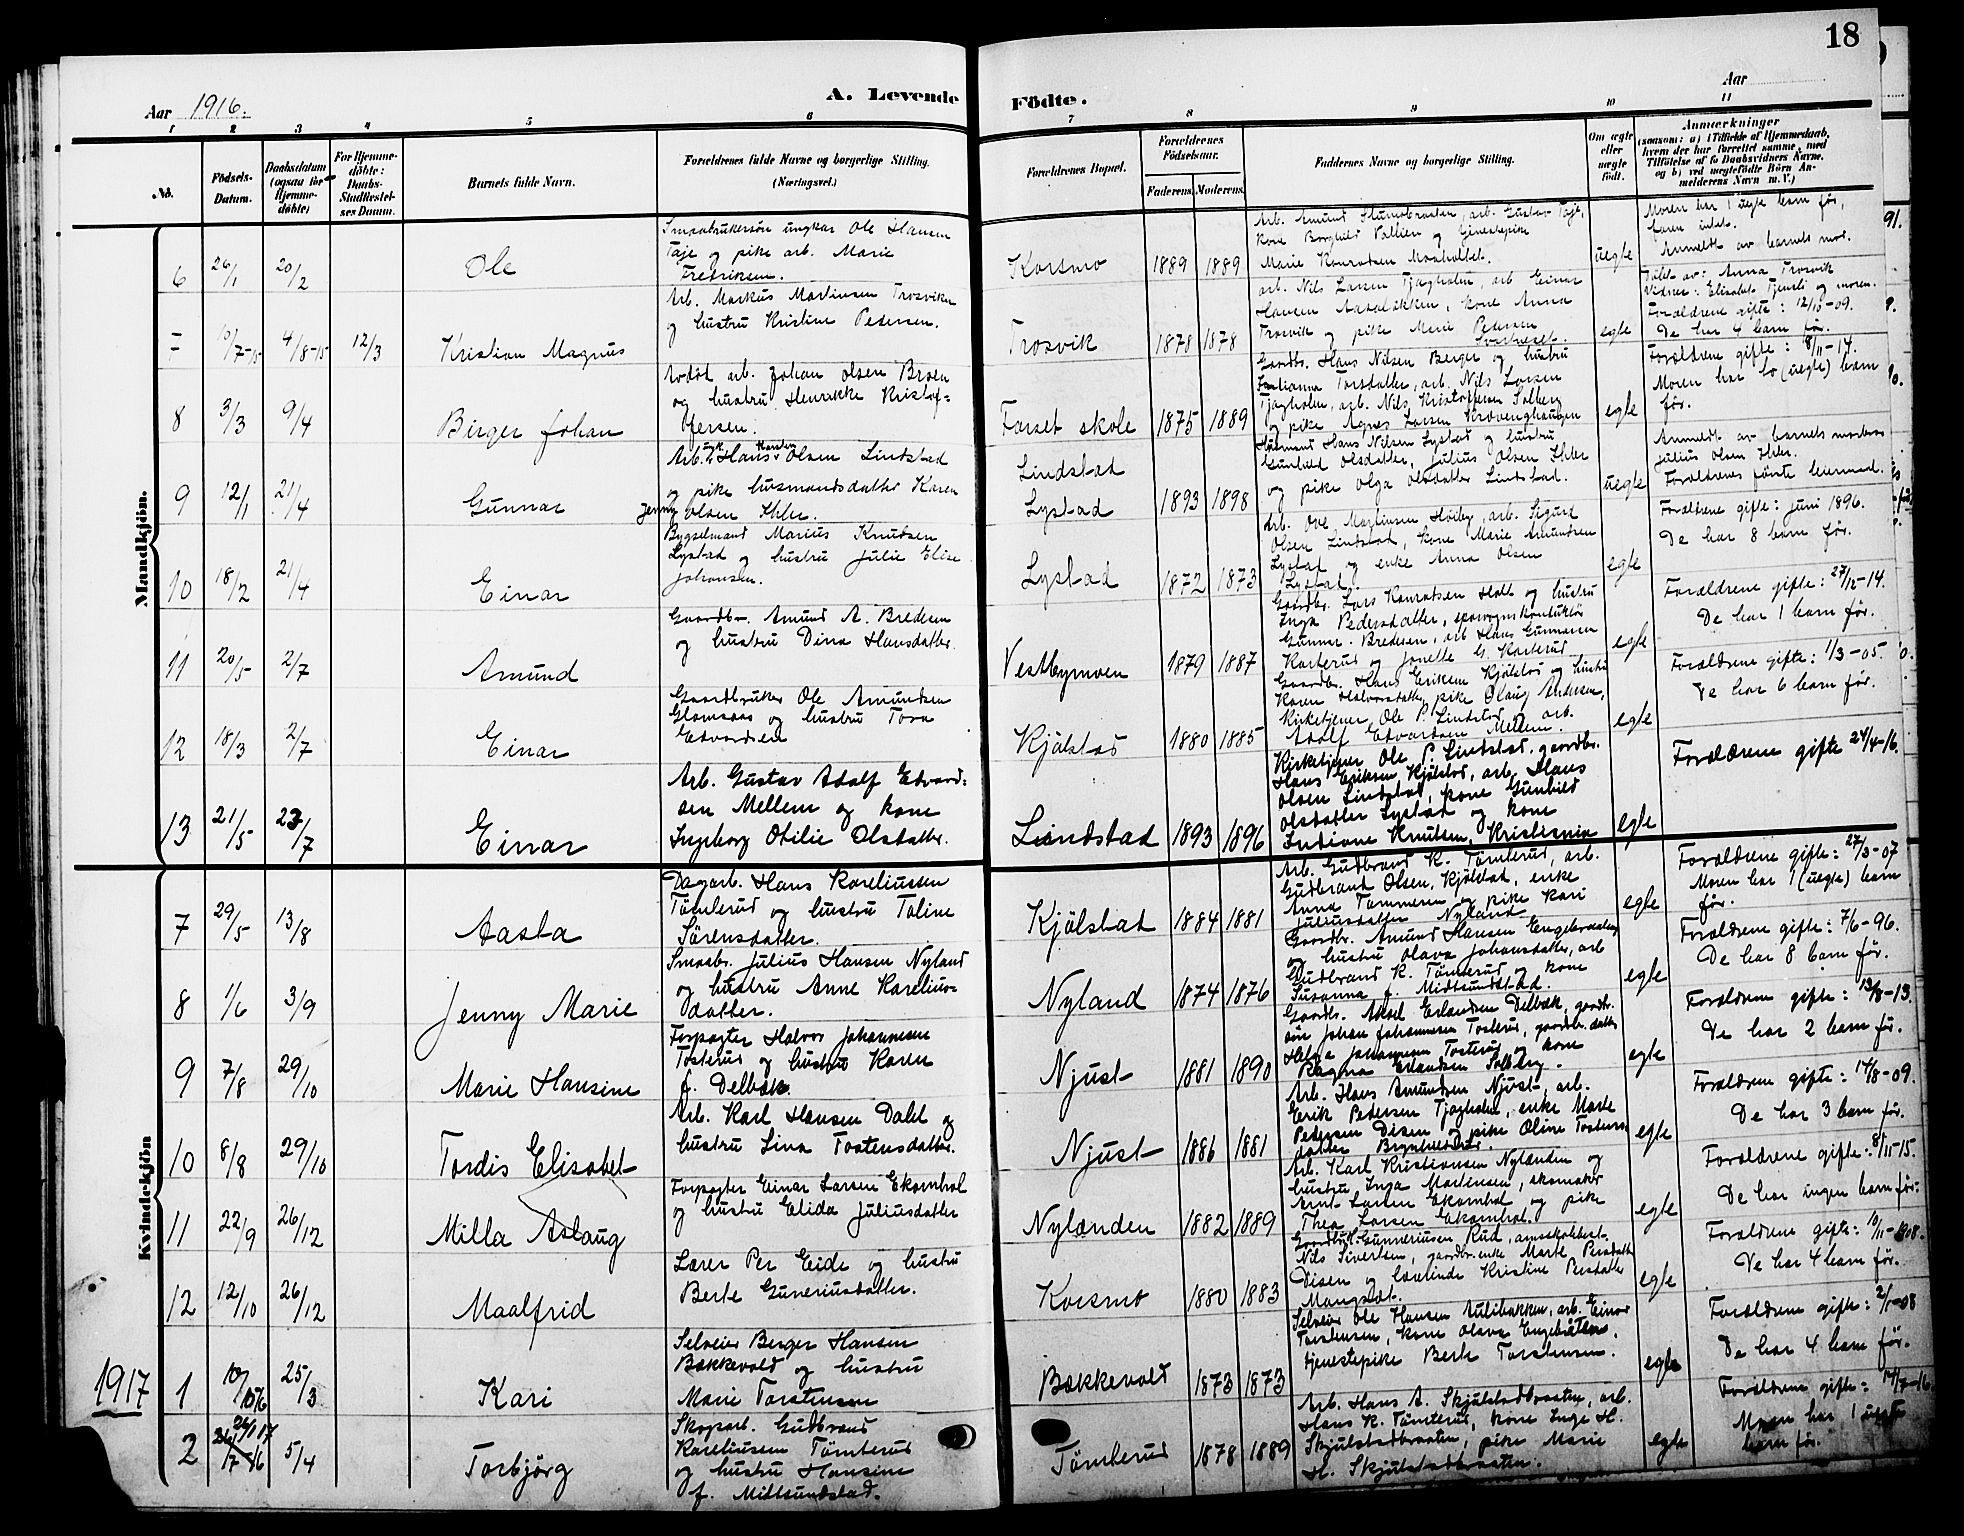 18
Aar 1916.
A. Levende
Födte.
Aar
1
2
3
4
5
6
7
8
9
10
11
No.
Födsels-
Datum.
Daabsdatum
(ogsaa for
Hjemme-
döbte)
For Hjemme-
döbte:
Daabs-
Stadfæstel-
ses Datum.
Barnets fulde Navn.
Forældrenes fulde Navne og borgerlige Stilling.
(Næringsvei.)
Forældrenes Bopæl.
Forældrenes
Födselsaar.
Faderens.
Moderens.
Faddernes Navne og borgerlige Stilling.
Om ægte
eller
uægte
födt.
Anmærkninger
(saasom: a) i Tilfælde af Hjemmedaab,
hvem der har forrettet samme, med
Tilföielse af to Daabsvidners Navne,
og b) ved uægtefödte Börn An-
melderens Navn m. V.)
Mandkjön.
6 26/1 20/2 Ole
Smaabrukersön ungkar Ole Hansen
Taje og pike arb. Marie
Fredriksen.
Korsmo 1889 1889
Kone Borghild Vollien og tjenestepike
uegte
Moren har 1 uegte barn för,
faren intet.
Anmeldt av barnets mor.
7 10/7-15 4/8-15 12/3 Kristian Magnus
Arb. Markus Martinsen Trosviken
og hustru Kristine Pedersen.
Trosvik 1878 1878
arb. Nils Larsen Tjægholen, arb Einar
Trosvik og pike Marie Pedersen
egte
Döbt av: Anna Trosvik
Vidner: Elisabet Tjensli og moren.
Forældrene gifte: 12/10-09.
De har 4 barn för.
8 3/3 9/4 Birger Johan
Avdöd arb. Johan Olsen Braen
og hustru Henrikke Kristof-
fersen.
Forset skole 1875 1889
Gaardbr. Hans Nilsen Berger og hustru
Julianna Torsdatter, arb. Nils Larsen
Tjægholen, arb. Nils Kristoffersen Solberg
og pike Agnes Larsen Kroevenghaugen
egte
Forældrene gifte: 8/11-14.
Moren har to (uegte) barn
för.
9 12/1 21/4 Gunnar
Arb. Hans Olsen Lindstad
og pike husmandsdatter Karen
Jenny Olsen Ihler.
Lindstad
Lystad 1893 1898
Husmand Hans Nilsen Lystad og hustru
Gunhild Olsdatter, Julius Olsen Ihler
og pike Olga Olsdatter Lindstad.
uegte
Anmeldt av barnets morbror
Julius Olsen Ihler.
Forældrenes förste leiermaal.
10 18/2 21/4 Einar
Bygselmand Marius Knudsen
Lystad og hustru Julie Elise
Johansen.
Lystad 1872 1873
Arb. Ove Martinsen Höiby, arb. Sigurd
Olsen Lindstad, kone Marie Amundsen
Lystad og enke Anna Olsen
Lystad.
egte
Forældrene gifte: juni 1896.
De har 8 barn för.
11 20/5 2/7 Amund
Gaardbr. Amund A. Bredesen
og hustru Dina Hansdatter.
Vestbymoen 1879 1887
Gaardbr. Lars Konratsen Holt og hustru
Inga Pedersdatter, sporvognskonduktör
Gunnar Bredesen, arb Hans Gunnarsen
Karterud og Jonette G. Karterud
egte
Forældrene gifte: 27/12-14.
De har 1 barn för.
12 18/3 2/7 Einar
Gaardbruker Ole Amundsen
Glomsaas og hustru Tora
Edvardsen
Kjölstad 1880 1885
Gaardbr. Hans Eriksen Kjölstad og hustru
Karen Halvorsdatter, pike Olaug Andersen,
Kirketjener Ole P. Lindstad og arb.
Adolf Edvardsen Mellem.
egte
Forældrene gifte: 1/3-05.
De har 6 barn för.
13 21/5 23/7 Einar
Arb. Gustav Adolf Edvard-
sen Mellem og kone
Ingeborg Otilie Olsdatter.
Lindstad 1893 1896
Kirketjener Ole P. Lindstad, gaardbr.
Hans Eriksen Kjölstad, arb. Hans
Olsen Lindstad, kone Gunhild
Olsdatter Lystad og kone
Indiane Knutsen, Kristiania
egte
Forældrene gifte 24/4-16.
Kvindekjön
7 29/5 13/8 Aasta
Dagarb. Hans Kareliussen
Tömterud og hustru Taline
Sörensdatter.
Kjölstad 1884 1881
Arb. Gudbrand K. Tömterud, arb.
Gudbrand Olsen, Kjölstad, enke
Anna Tommesen og pike Kari
Juliusdatter Nyland
egte
Forældrene gifte: 27/3-07
Moren har 1 (uegte) barn
för.
8 1/6 3/9 Jenny Marie
Smaabr. Julius Hansen Nyland
og hustru Anne Karelius-
datter.
Nyland 1874 1876
Gaardbr. Amund Hansen Engebrodalen
og hustru Olava Johansdatter, arb
Gudbrand K. Tömterud og kone
Susanna f. Midtsundstad.
egte
Forældrene gifte: 7/6-96.
De har 8 barn för.
9 7/8 29/10 Marie Hansine
Forpagter Halvor Johannesen
Tosterud og hustru Karen
f. Delbæk.
Njust 1881 1890
Gaardb. Aksel Erlandsen Delbæk, gaardbr.
sön Johan Johannesen Tosterud, gaardbr. datter
Helga Johannesen Tosterud og kone
Ragna Erlandsen Solberg.
egte
Forældrene gifte: 13/8-13.
De har 2 barn för.
10 8/8 29/10 Tordis Elisabet
Arb. Karl Hansen Dalet og
hustru Lina Tostensdatter.
Njust 1886 1881
Arb. Hans Amundsen Njust, arb.
Erik Pedersen Tjægholen, enke Marte
Pedersen Disen og pike Oline Tostens-
datter
egte
Forældrene gifte: 14/8-09.
De har 3 barn för.
11 22/9 26/12 Milla Aslaug
Forpagter Einar Larsen Ekornhol
og hustru Elida Juliusdatter
Nylænden 1882 1889
Arb. Karl Kristiansen Nylænden og
hustru Inga Martinsen, skomaker
Arnt Larsen Ekornhol og pike
Thea Larsen Ekornhol.
egte
Forældrene gifte: 8/11-15.
De har ingen barn för.
12 12/10 26/12 Maalfrid
Lærer Per Eide og hustru
Berte Guneriusdatter.
Korsmo 1880 1883
Nils Sivertsen, gaardbr.enke Marte Persdatter
Disen og lærerinde Kristine Persdatter
Mangset.
egte
Forældrene gifte: 10/11-1908.
De har 4 barn för.
1917
1 10/10 16 25/3 Kari
Selveier Berger Hansen
Bækkevold og hustru
Marie Torstensen
Bækkevold 1873 1873
Selveier Ole Hansen Aulibakken, arb. Einar
Torstensen, kone Olava Engebråten,
tjenestepike Berte Torstensen.
egte
Forældrene gifte: 2/1-08
De har 4 barn för.
2 26/1 17 5/4 Torbjörg
Skogarb. Gudbrand
Kareliussen Tömterud
og hustru Hansine
f. Midtsundstad.
Tömterud 1878 1889
Arb. Hans A. Skjulstadbraaten, arb.
Hans K. Tömterud, kone Inge H.
Skjulstadbraaten, pike Marie
H. Skjulstadbraaten.
egte
Moren har 1 uegte
barn för.